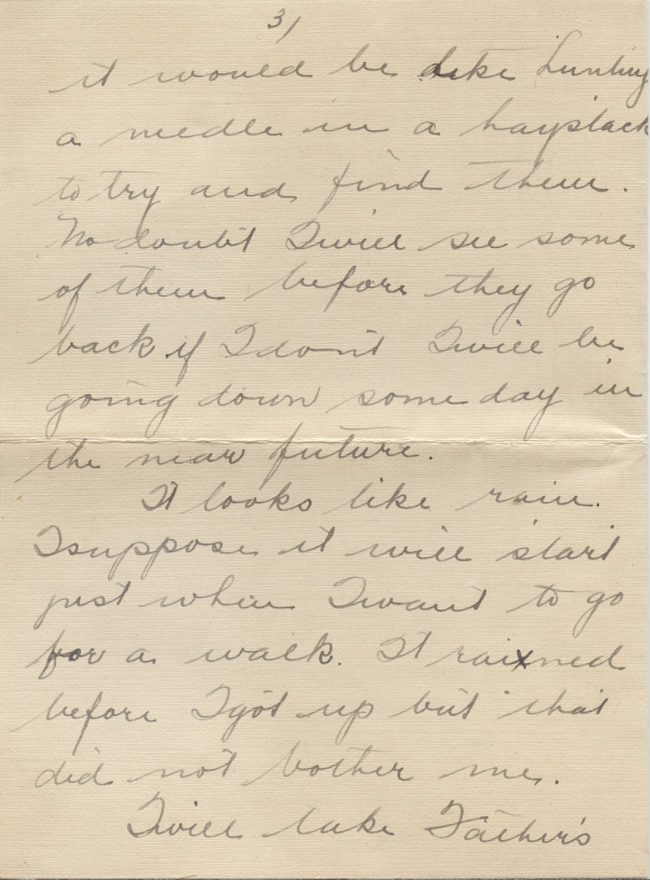 3/
it would be like hunting
a needle in a haystack
to try and find them.
No doubt I will see some
of them before they go
back if I don't I will be
going down some day in
the near future.
It looks like rain.
I suppose it will start
just when I want to go
for a walk. It rained
before I got up but that
did not bother me.
I will take Father's